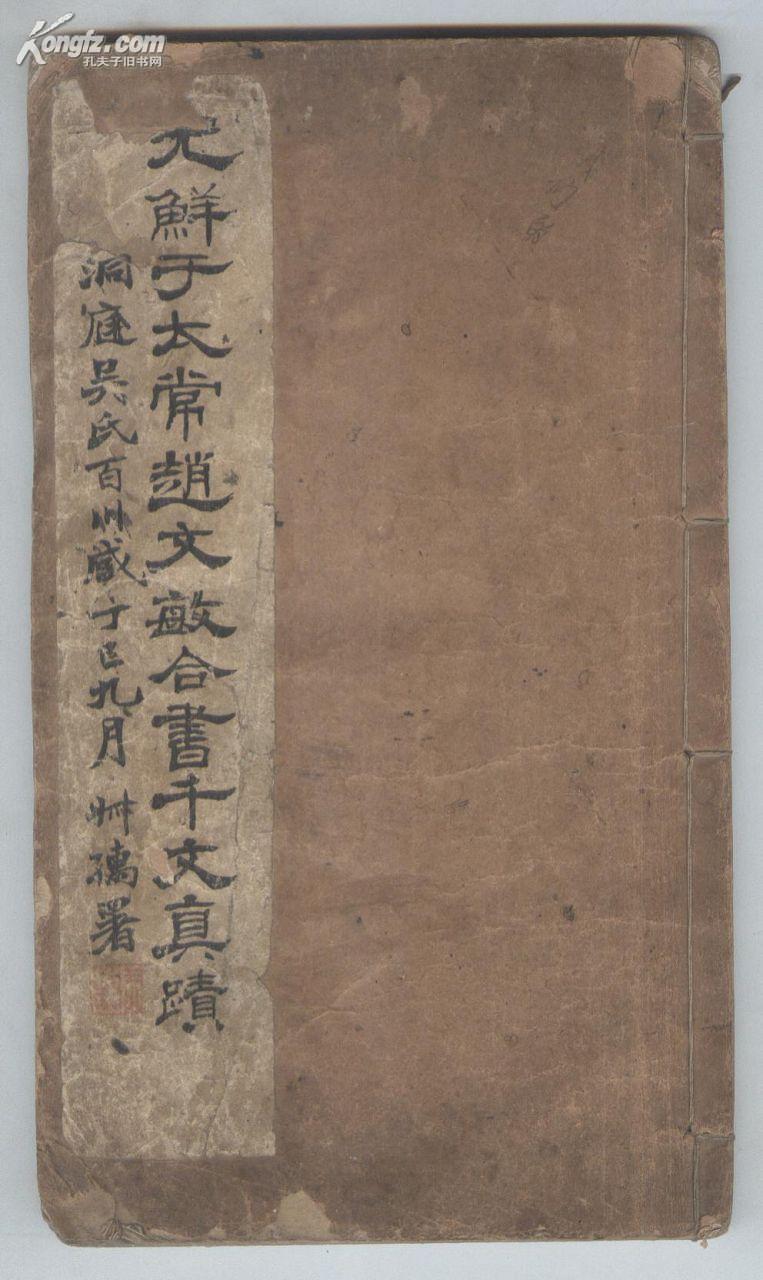 Kongfz.com
孔夫子旧书网
元鮮于太常趙文敏合書千文真蹟
洞庭吳氏百川藏丁巳九月艸 署